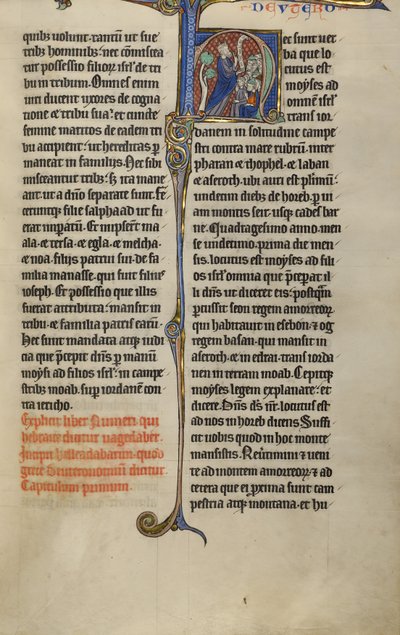 DEUTERO
quibz uolunt. tantum ut sue
tribz hominibz: nec cōmisceat̄
tur possessio filioꝝ isrl̄ de tri
bu in tribum. Omnes enim
uiri ducent uxores de cogna
tione ⁊ tribu sua: et cuncte
femine maritos de eadem tri
bu accipient: ut hereditas ꝑ
maneat in familiis. Nec sibi
misceantur tribz: sꝫ ita mane
ant ut a dn̄o separate sunt. Fe
ceruntqꝫ filie salphaad ut fu
erat imꝑatū. Et nupserunt ma
ala. ⁊ tersa. ⁊ egla. ⁊ melcha.
⁊ noa. filijs patrui sui. de fa
milia manasse. qui fuit filius
ioseph. Et possessio que illis
fuerat attributa: mansit in
tribu. ⁊ familia patris earū.
Hec sunt mandata atqꝫ iudi
cia que p̄cepit dn̄s ꝑ manū
moysi ad filios isrl̄: in campe
stribz moab. sup̄ iordanē con
tra iericho.
Explicit liber Numeri. qui
hebraice dicitur uagedaber.
Incipit helleadabarim. quod
grece Deuteronomiū dicitur.
Capitulum primum.
Hec sunt uer
ba que lo
cutus est
moyses ad
omnē isrl̄
trans ior
danem in solitudine campe
stri contra mare rubrū. inter
pharan ⁊ thophel. ⁊ laban
⁊ aseroth. ubi auri est plimū:
undecim diebz de horeb. ꝑ ui
am montis seir. usqꝫ cades bar
ne. Quadragesimo anno. men
se undecimo. prima die men
sis. locutus est moyses ad fili
os isrl̄ omnia que p̄ceꝑat il
li dn̄s ut diceret eis: postqm̄
ꝑcussit seon regem amorreoꝝ
qui habitauit in esebon: ⁊ og
regem basan. qui mansit in
aseroth. ⁊ in edrai. trans iorda
nen in terram moab. Cepitqꝫ
moyses legem explanare: et
dicere. Dn̄s ds̄ nr̄. locutus est
ad nos in horeb dicens. Suffi
cit uobis quod in hoc monte
mansistis. Reūtimini ⁊ ueni
te ad montem amorreoꝝ: ⁊ ad
cetera que ei ꝓxima sunt cam
pestria atqꝫ montana. et hu